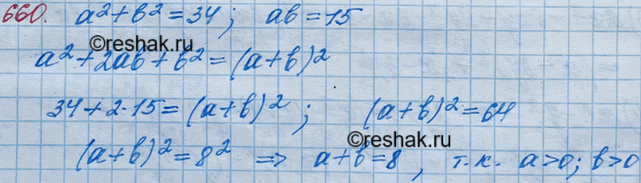 660. a² + b² = 34; ab = 15
©reshak.ru
a² + 2ab + b² = (a+b)²
34 + 2·15 = (a+b)²; (a+b)² = 64
©reshak.ru
(a+b)² = 8² => a+b = 8, т.к. a>0; b>0